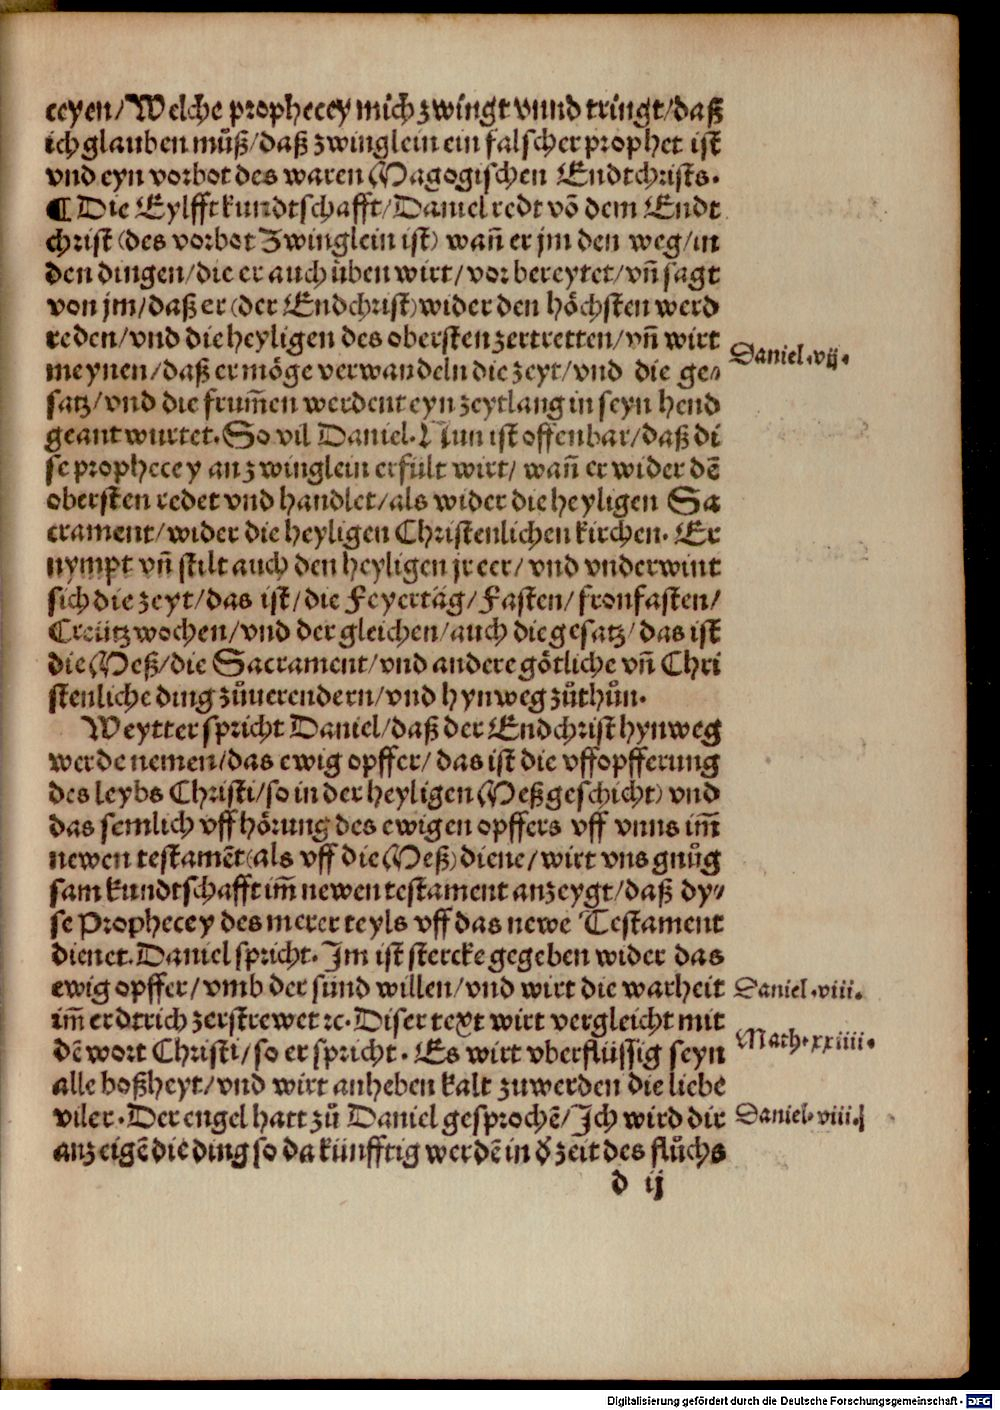 ceyen/Welche prophecey mich zwingt vnnd tringt/daß
ich glauben muͤß/daß zwinglein ein falscher prophet ist
vnd eyn vorbot des waren Magogischen Endtchrists.
¶ Die Eylfft kundtschafft/Daniel redt võ dem Endt
christ (des vorbot Zwinglein ist) wañ er jm den weg/in
den dingen/die er auch uͤben wirt/vor bereytet/vñ sagt
von jm/daß er (der Endchrist) wider den hoͤchsten werd
reden/vnd die heyligen des obersten zertretten/vñ wirt
meynen/daß er moͤge verwandeln die zeyt/vnd die ge⸗
Daniel.vij.
satz/vnd die frum̃en werdent eyn zeytlang in seyn hend
geantwurtet. So vil Daniel. Nun ist offenbar/daß di
se prophecey an zwinglein erfült wirt/ wañ er wider dẽ
obersten redet vnd handlet/als wider die heyligen Sa
crament/wider die heyligen Christenlichen kirchen. Er
nympt vñ stilt auch den heyligen jr eer/ vnd vnderwint
sich die zeyt/das ist/die Feyertaͤg/Fasten/fronfasten/
Creütz wochen/vnd der gleichen/auch die gesatz/das ist
die Meß/die Sacrament/vnd andere goͤtliche vñ Chri
stenliche ding zuͤuerendern/vnd hynweg zuͤthuͤn.
Weytter spricht Daniel/daß der Endchrist hynweg
werde nemen/das ewig opffer/das ist die vffopfferung
des leybs Christi/so in der heyligen Meß geschicht) vnd
das semlich vffhoͤrung des ewigen opffers vff vnns im̃
newen testamẽt (als vff die Meß) diene/wirt vns gnuͤg
sam kundtschafft im̃ newen testament anzeygt/daß dy⸗
se Prophecey des merer teyls vff das newe Testament
dienet. Daniel spricht. Im ist stercke gegeben wider das
ewig opffer/vmb der sünd willen/vnd wirt die warheit
Daniel.viii.
im̃ erdtrich zerstrewet ꝛc. Diser text wirt vergleicht mit
Math.xxiiii.
dẽ wort Christi/so er spricht. Es wirt vberflüssig seyn
alle boßheyt/vnd wirt anheben kalt zuwerden die liebe
viler. Der engel hatt zuͤ Daniel gesprochẽ/Ich wird dir
Daniel.viii.
anzeigẽ die ding so da künfftig werdẽ in d̕ zeit des fluͤchs
d ij
Digitalisierung gefördert durch die Deutsche Forschungsgemeinschaft - DFG